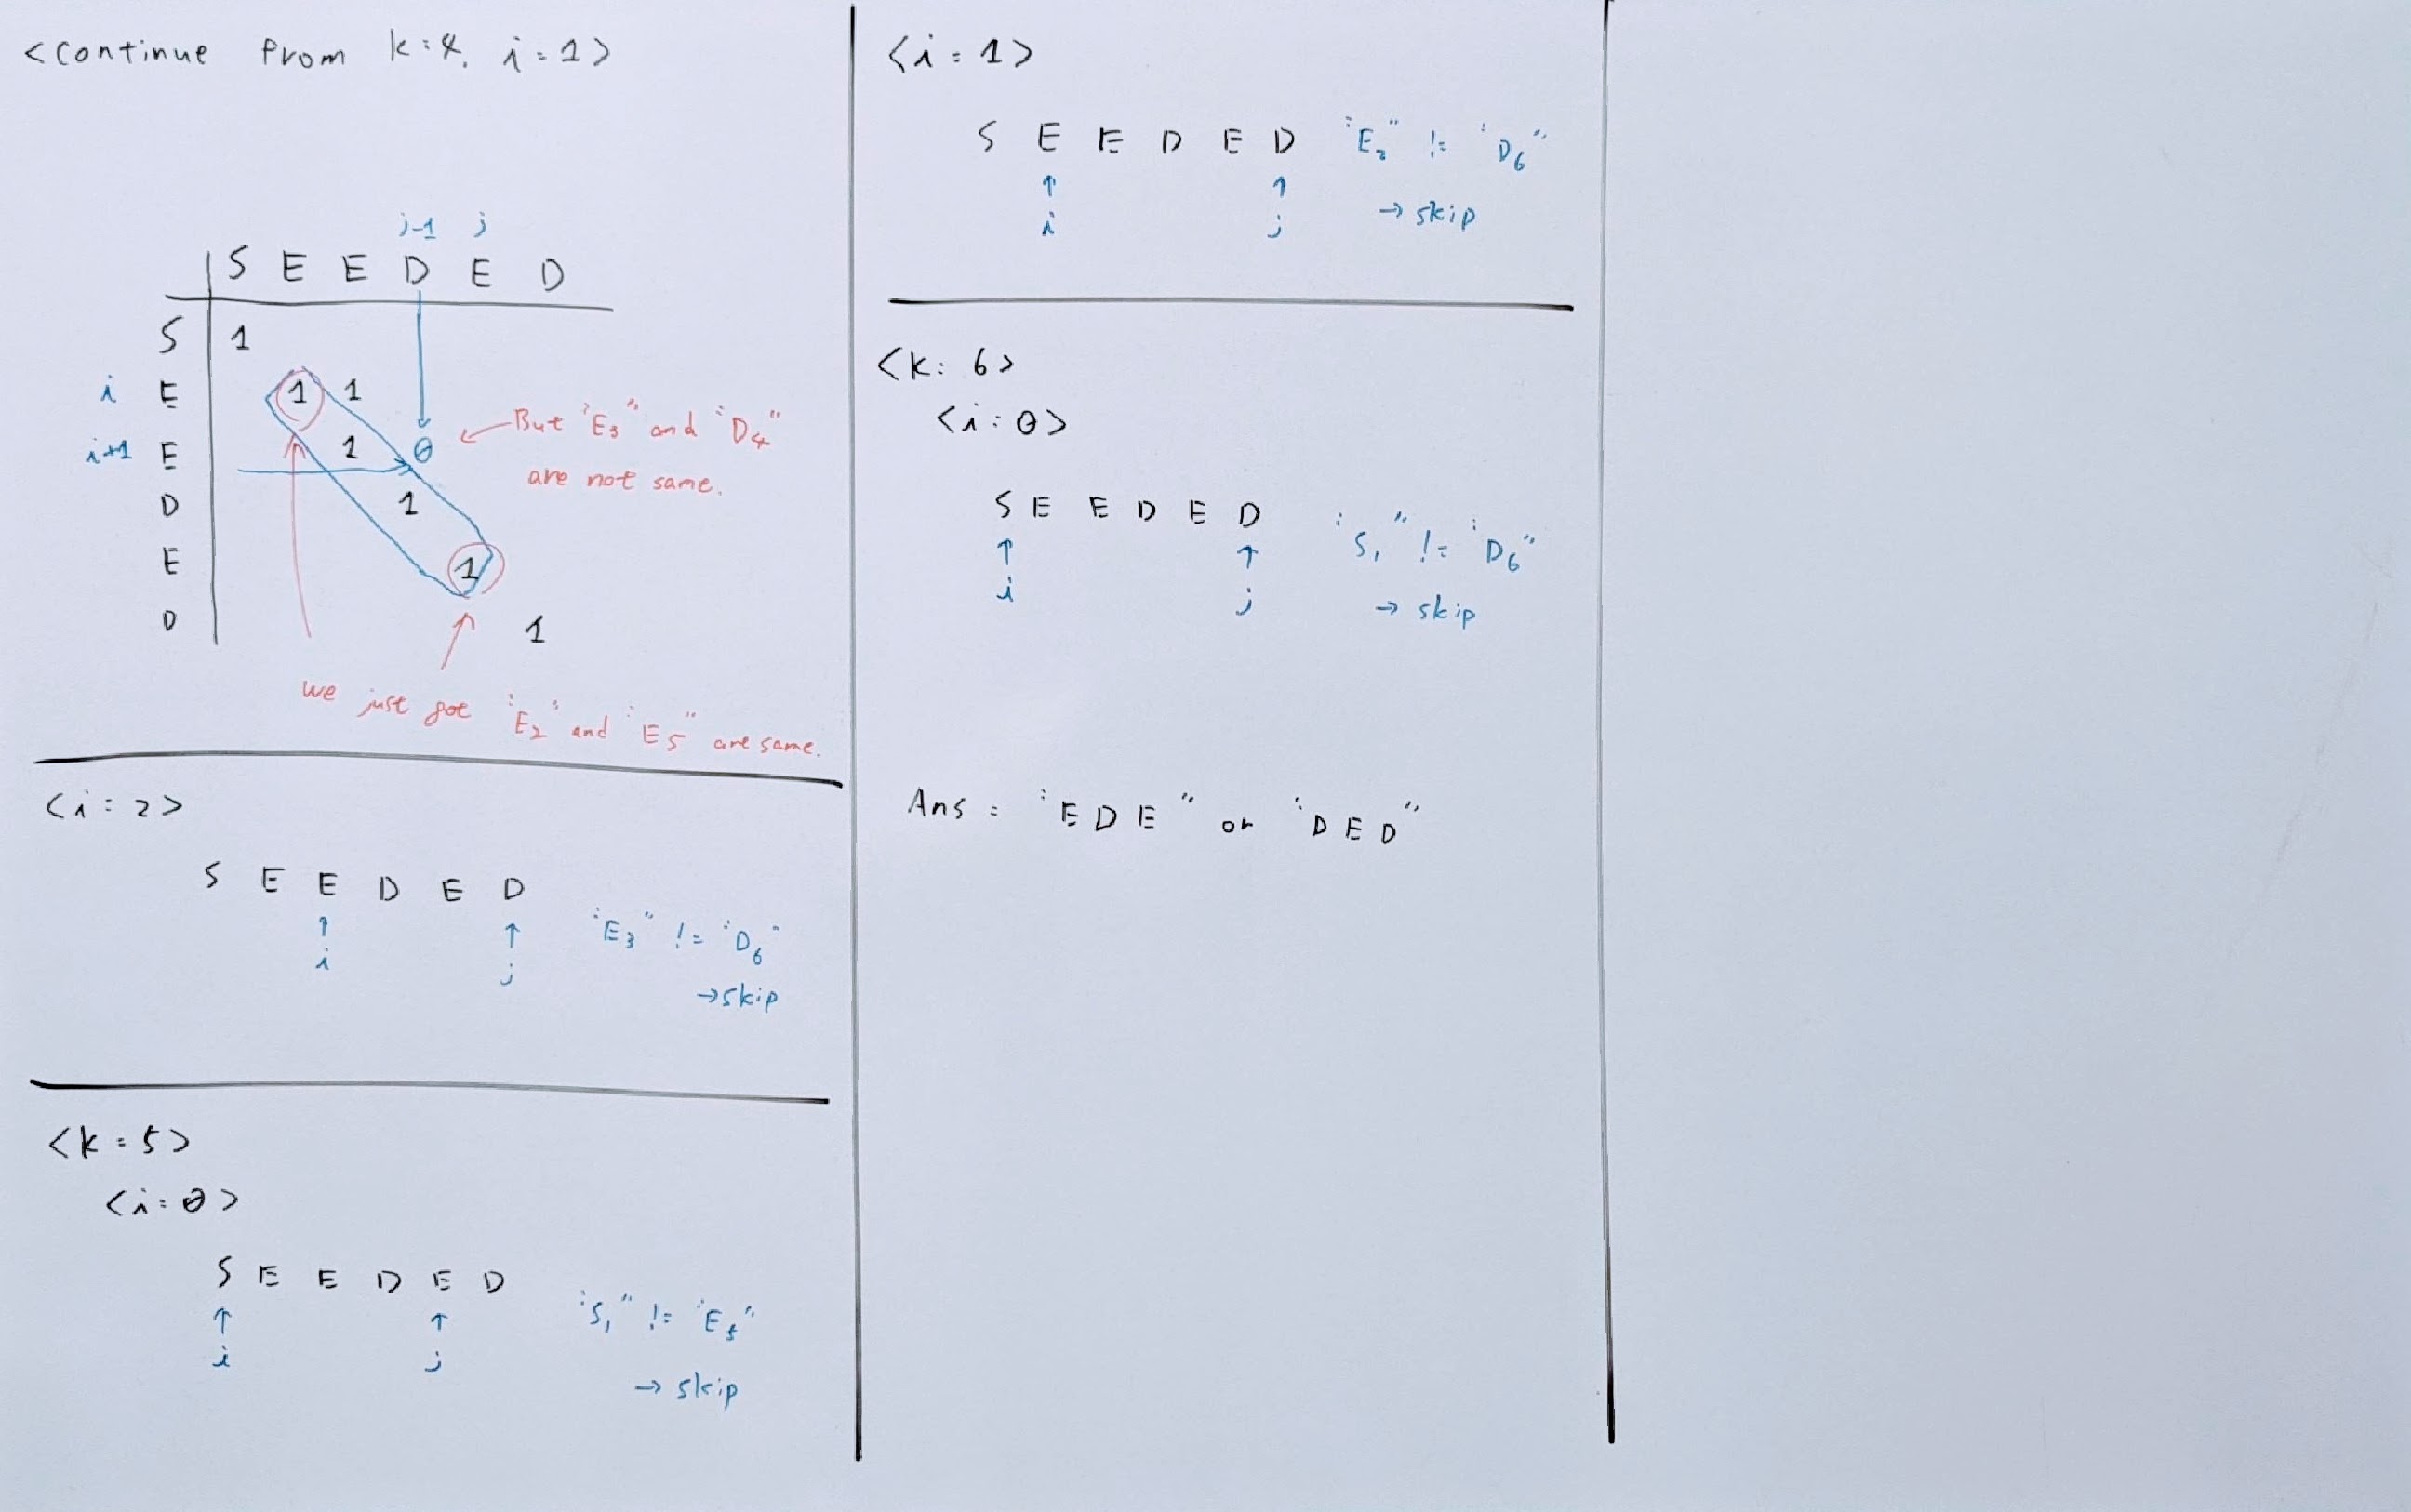 <Continue from k:4, i=1>
j-1 j
S E E D E D
S 1
i E 1 1
i+1 E 1 0
D 1
E 1
D 1
But "E3" and "D4"
are not same.
we just got "E2" and "E5" are same.
<i:2>
S E E D E D
↑ ↑
i j
"E3" != "D6"
→skip
<k=5>
<i:0>
S E E D E D
↑ ↑
i j
"S1" != "E5"
→ skip
<i=1>
S E E D E D
↑ ↑
i j
"E2" != "D6"
→ skip
<k: 6>
<i:0>
S E E D E D
↑ ↑
i j
"S1" != "D6"
→ skip
Ans = "EDE" or "DED"